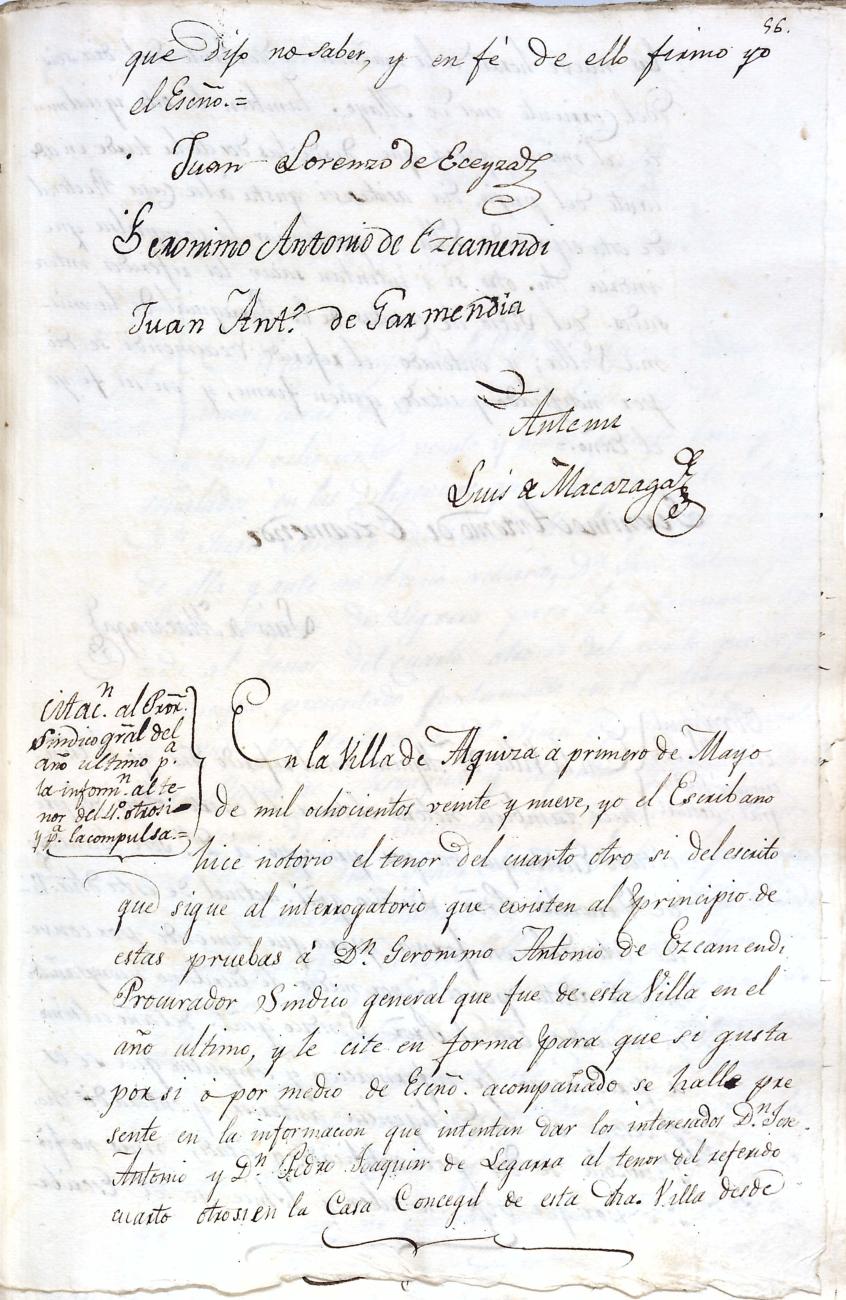 96.
que Dijo no saber, y en fé de ello firmo yo
el Escño.=
Juan Lorenzo de Eceyza
Geronimo Antonio de Ezcamendi
Juan Antº. de Garmendia
Antemi
Luis de Macazaga
Citacn. al Pror.
Sindico gral del
año ultimo pa.
la informn. al te-
nor del 4º. otrosi
y pa. la compulsa.=
En la Villa de Alquiza á primero de Mayo
de mil ochocientos veinte y nueve, yo el Escribano
hice notorio el tenor del cuarto otro si del escrito
que sigue al interrogatorio que existen al principio de
estas pruebas á Dn. Geronimo Antonio de Ezcamendi
Procurador Sindico general que fue de esta Villa en el
año ultimo, y le cite en forma para que si gusta
por si ó por medio de Escño. acompañado se halle pre
sente en la informacion que intentan dar los interesados Dn. Jose
Antonio y Dn. Pedro Joaquin de Legarra al tenor del referido
cuarto otrosi en la Casa Concegil de esta dha. Villa desde